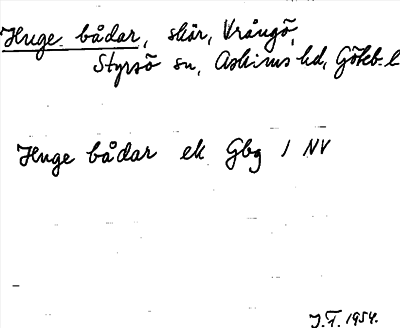 Huge bådar, skär, Vrångö,
Styrsö sn, Askims hd, Göteb. l
Huge bådar ek Gbg 1 NV
J.T. 1954.